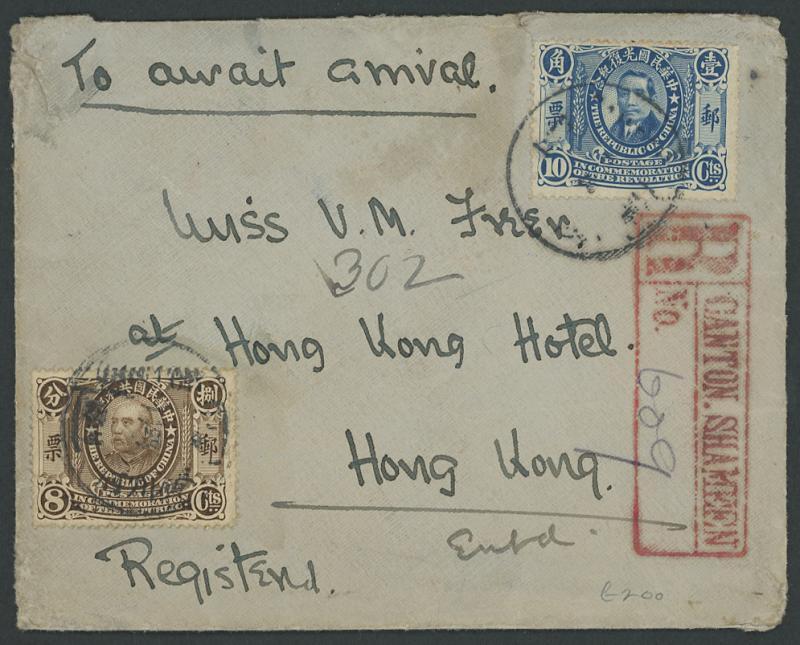 To await arrival.
角 中華民國光復紀念 壹
票 郵
THE REPUBLIC OF CHINA
POSTAGE
10 IN COMMEMORATION Cts
OF THE REVOLUTION
Miss V. M. Frer
302
at Hong Kong Hotel.
Hong Kong.
Entd.
Registered.
£200
分 中華民國共和紀念 捌
票 郵
THE REPUBLIC OF CHINA
POSTAGE
8 IN COMMEMORATION Cts
OF THE REPUBLIC
R CANTON. SHAMEEN
No. 609